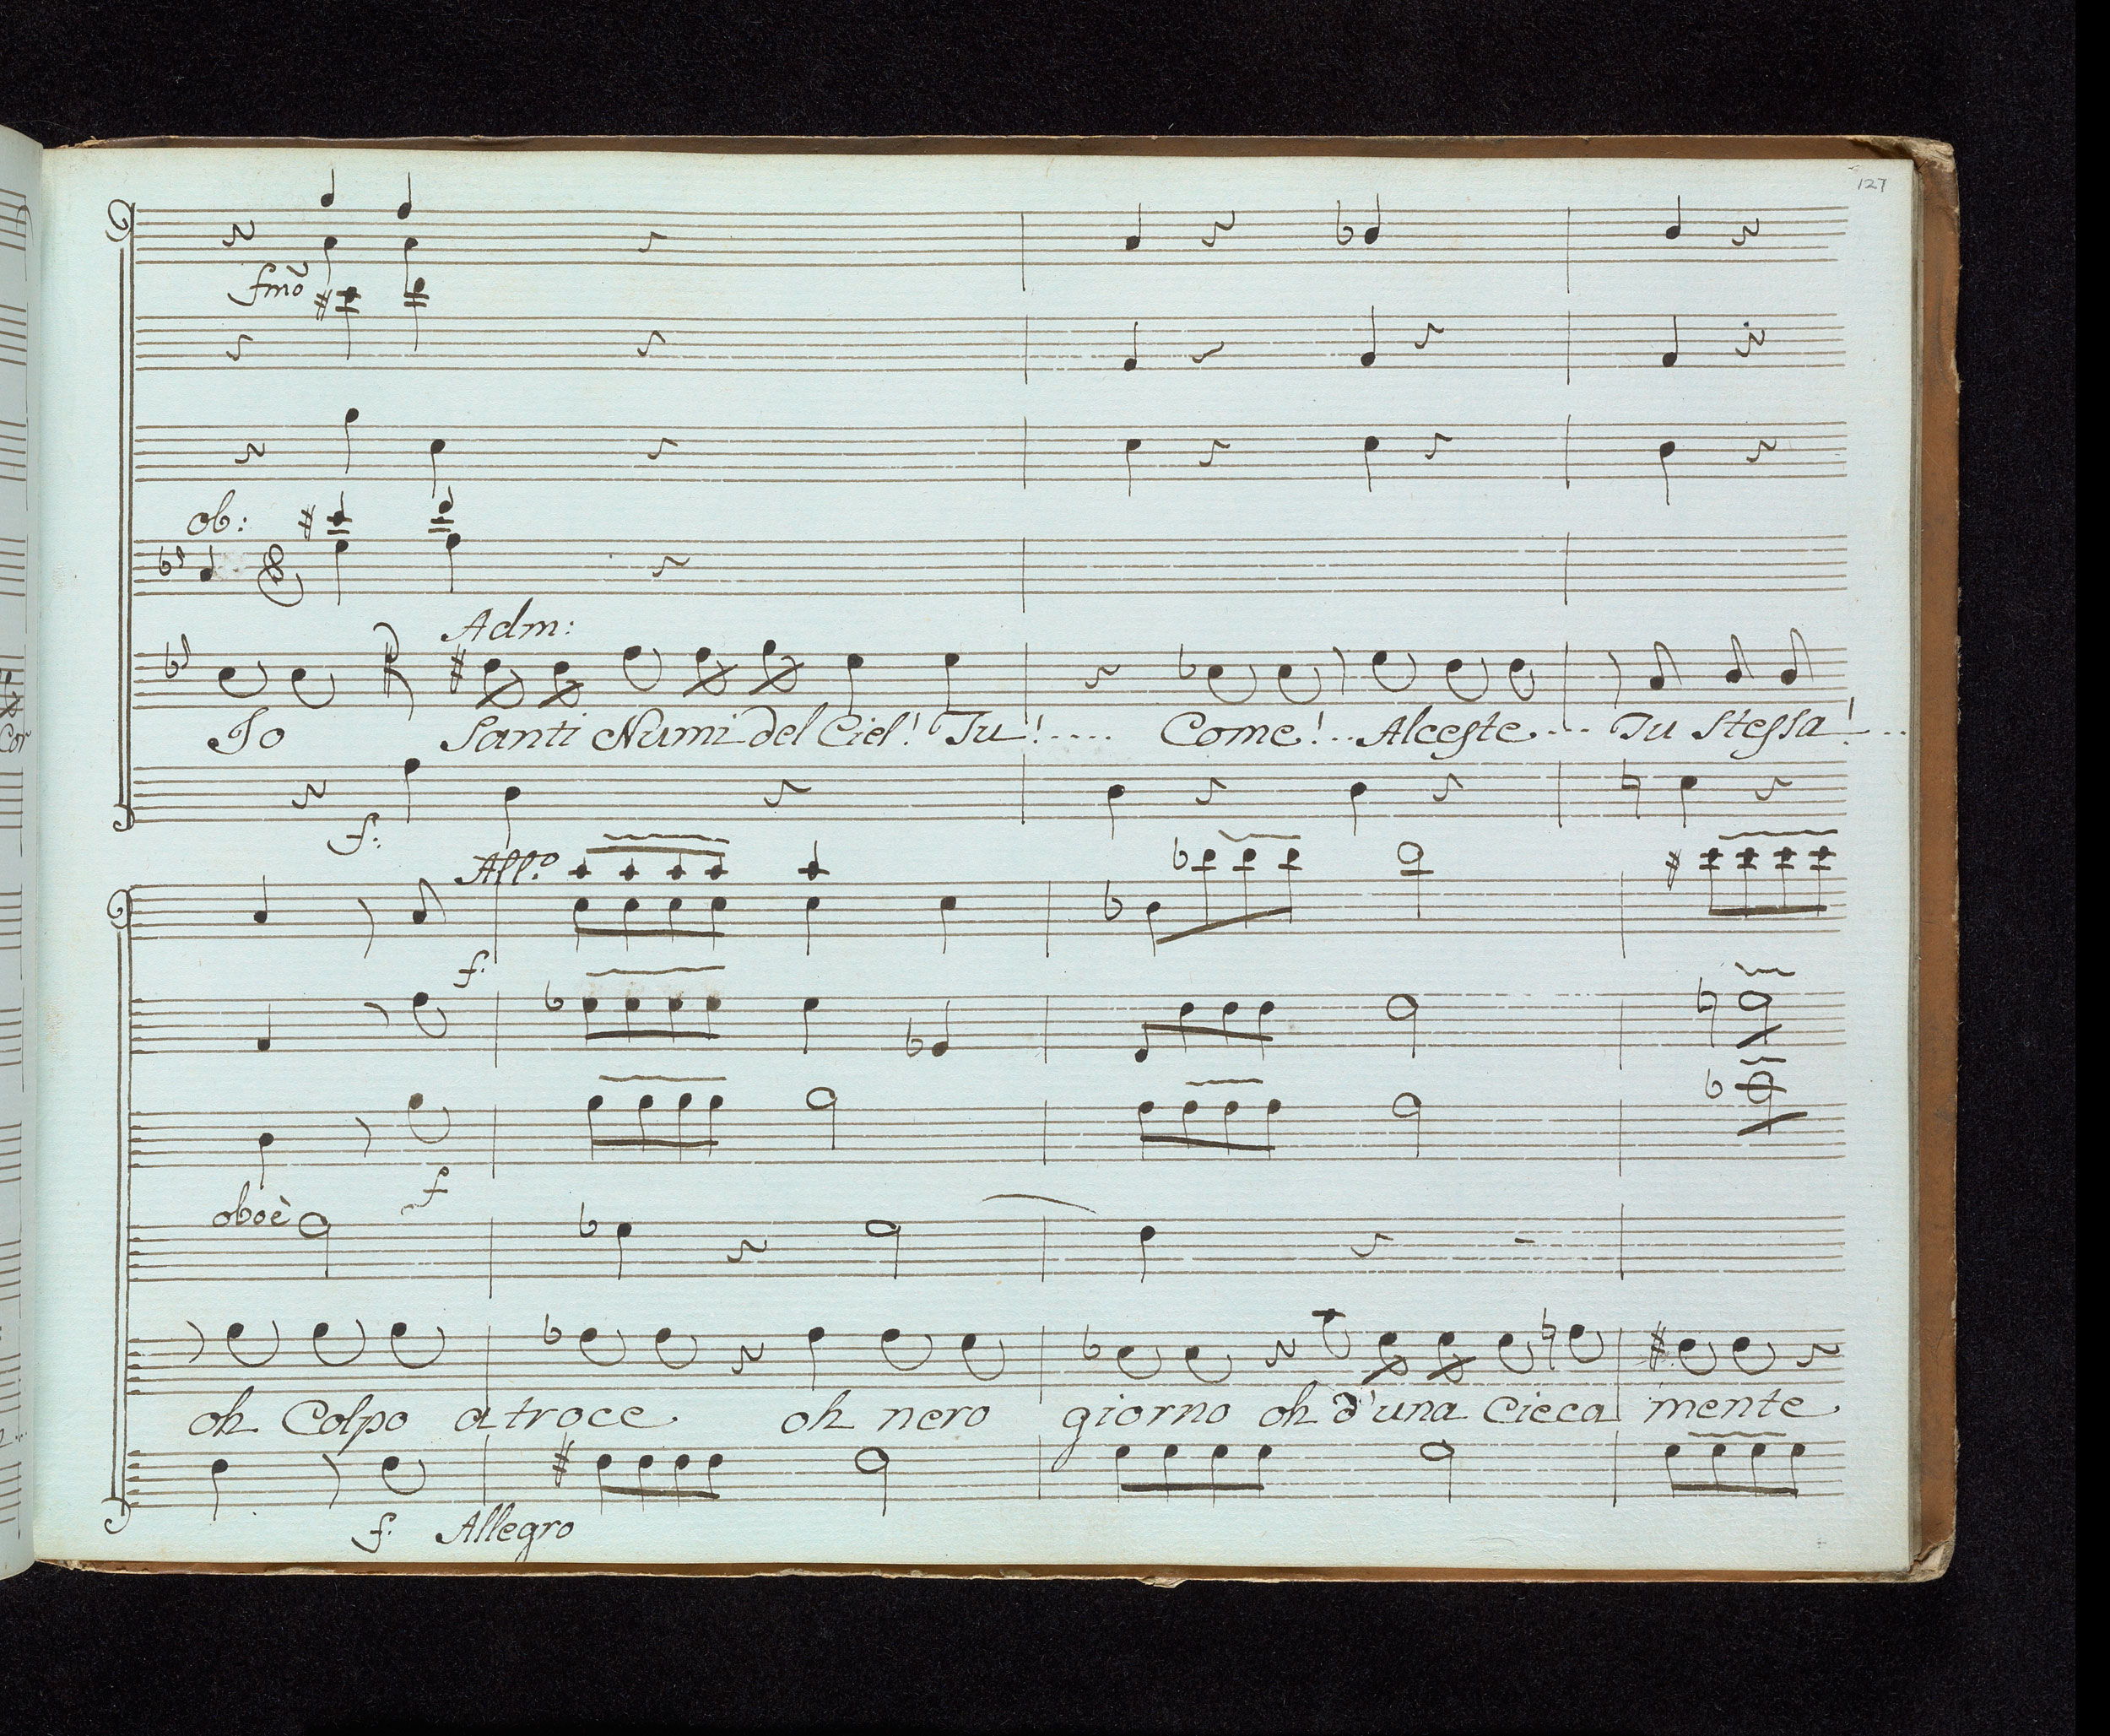 127
fmo
ob:
Adm:
Io Santi Numi del Ciel! Tu!.... Come!.. Alceste... Tu stessa!..
f:
All.o
f.
f
oboè
oh Colpo atroce oh nero giorno oh d'una cieca mente
f. Allegro